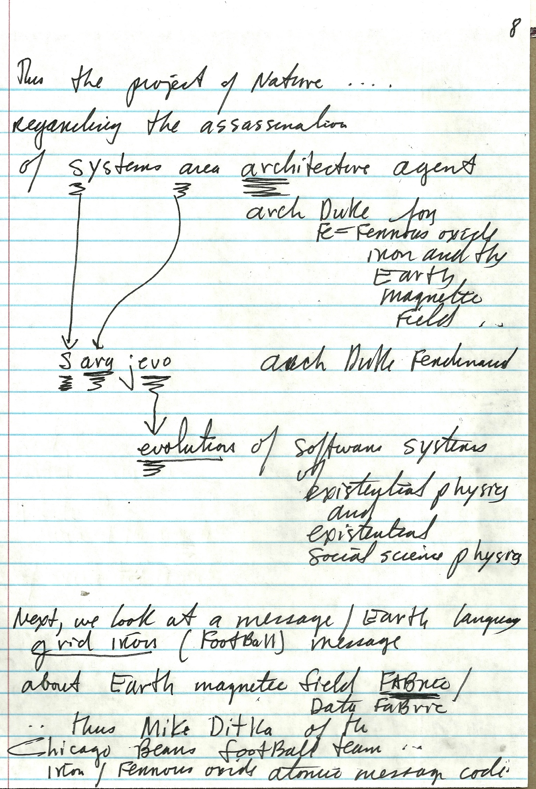 8
Thus the project of Nature ....
regarding the assassenation
of systems area architective agent
arch Duke for
Fe = Ferrous oxide
iron and the
Earth
magnetic
field ..
S ara j evo arch Duke Ferdinand
evolution of software systems
of
existential physics
and
existential
social science physics
Next, we look at a message / Earth language
grid iron (FootBall) message
about Earth magnetic field FABric /
Data FaBric
.. thus Mike Ditka of th
Chicago Bears footBall team ..
iron / Ferrous oxide atomic message code